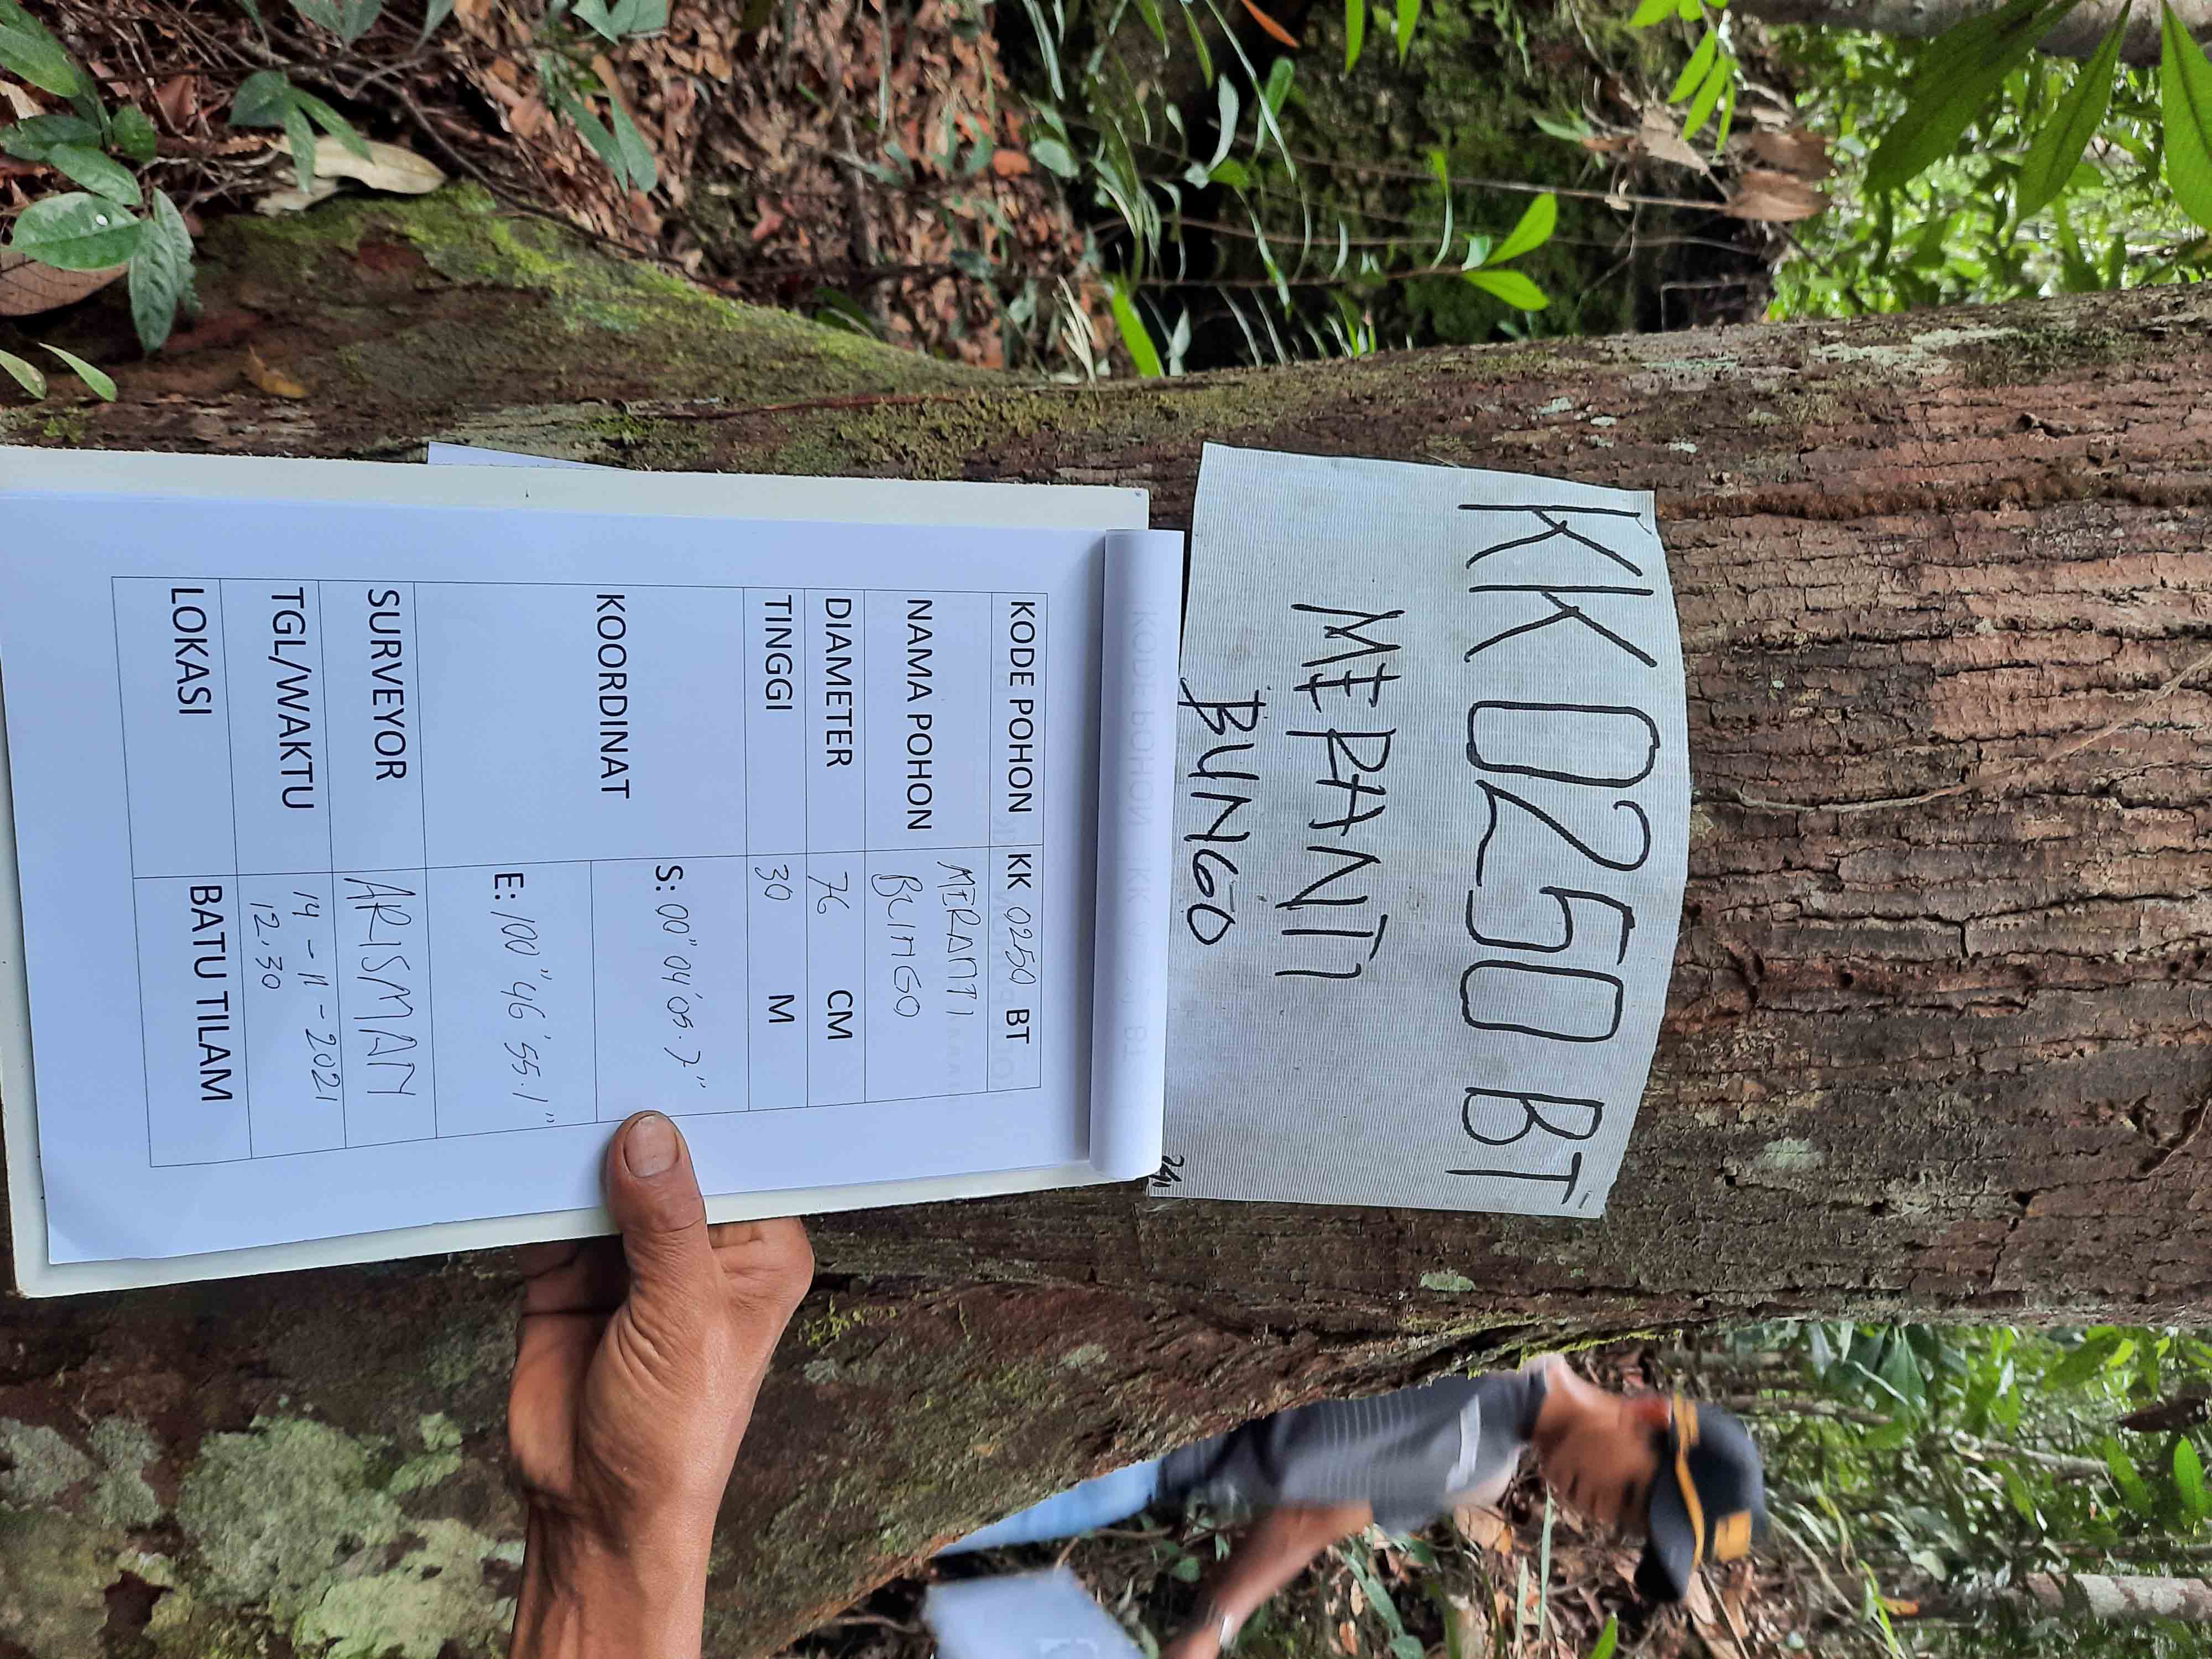 KK 0250 BT
MERANTI
BUNGO
KODE POHON KK 0250 BT
NAMA POHON MERANTI
BUNGO
DIAMETER 76 CM
TINGGI 30 M
KOORDINAT S: 00" 04' 05.7"
E: 100" 46' 55.1"
SURVEYOR ARISMAN
TGL/WAKTU 14-11-2021
12.30
LOKASI BATU TILAM